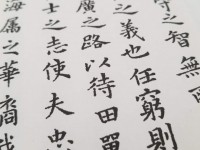 守之智無
之義也任窮則
廣之路以待田單
士之志使夫忠
海屬之華裔我